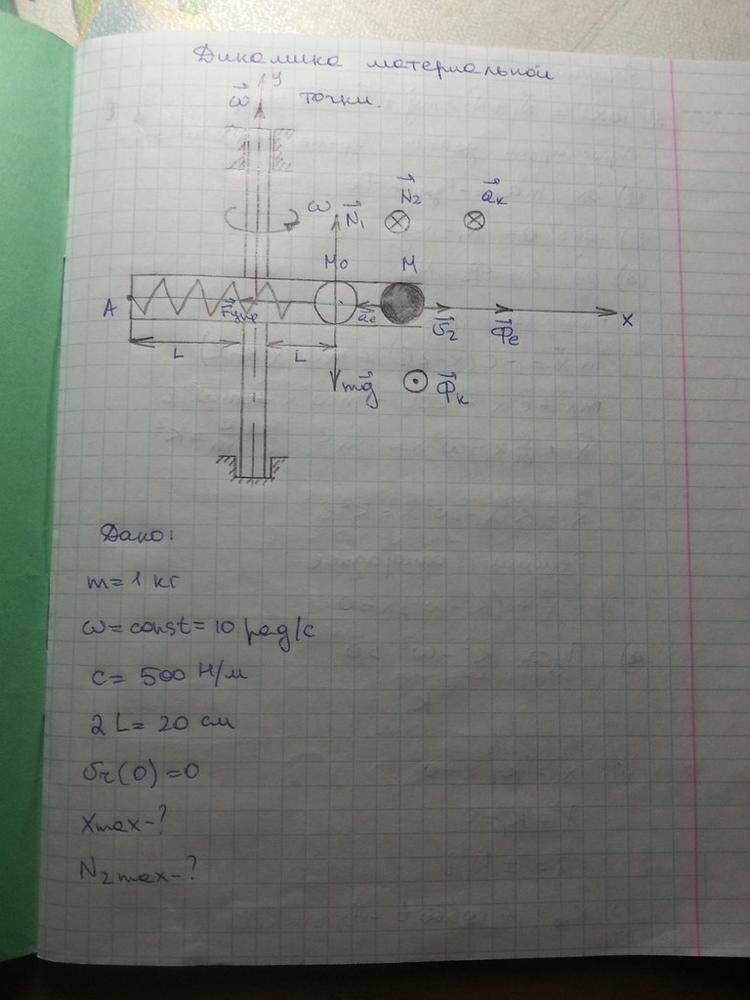 Динамика материальной
точки.
y
ω
ω N₁ N₂ aк
M₀ M
A Fупр aе υ₂ Фе x
L L
mg Фк
Дано:
m = 1 кг
ω = const = 10 рад/с
c = 500 Н/м
2L = 20 см
υr(0) = 0
xmax - ?
N₂max - ?